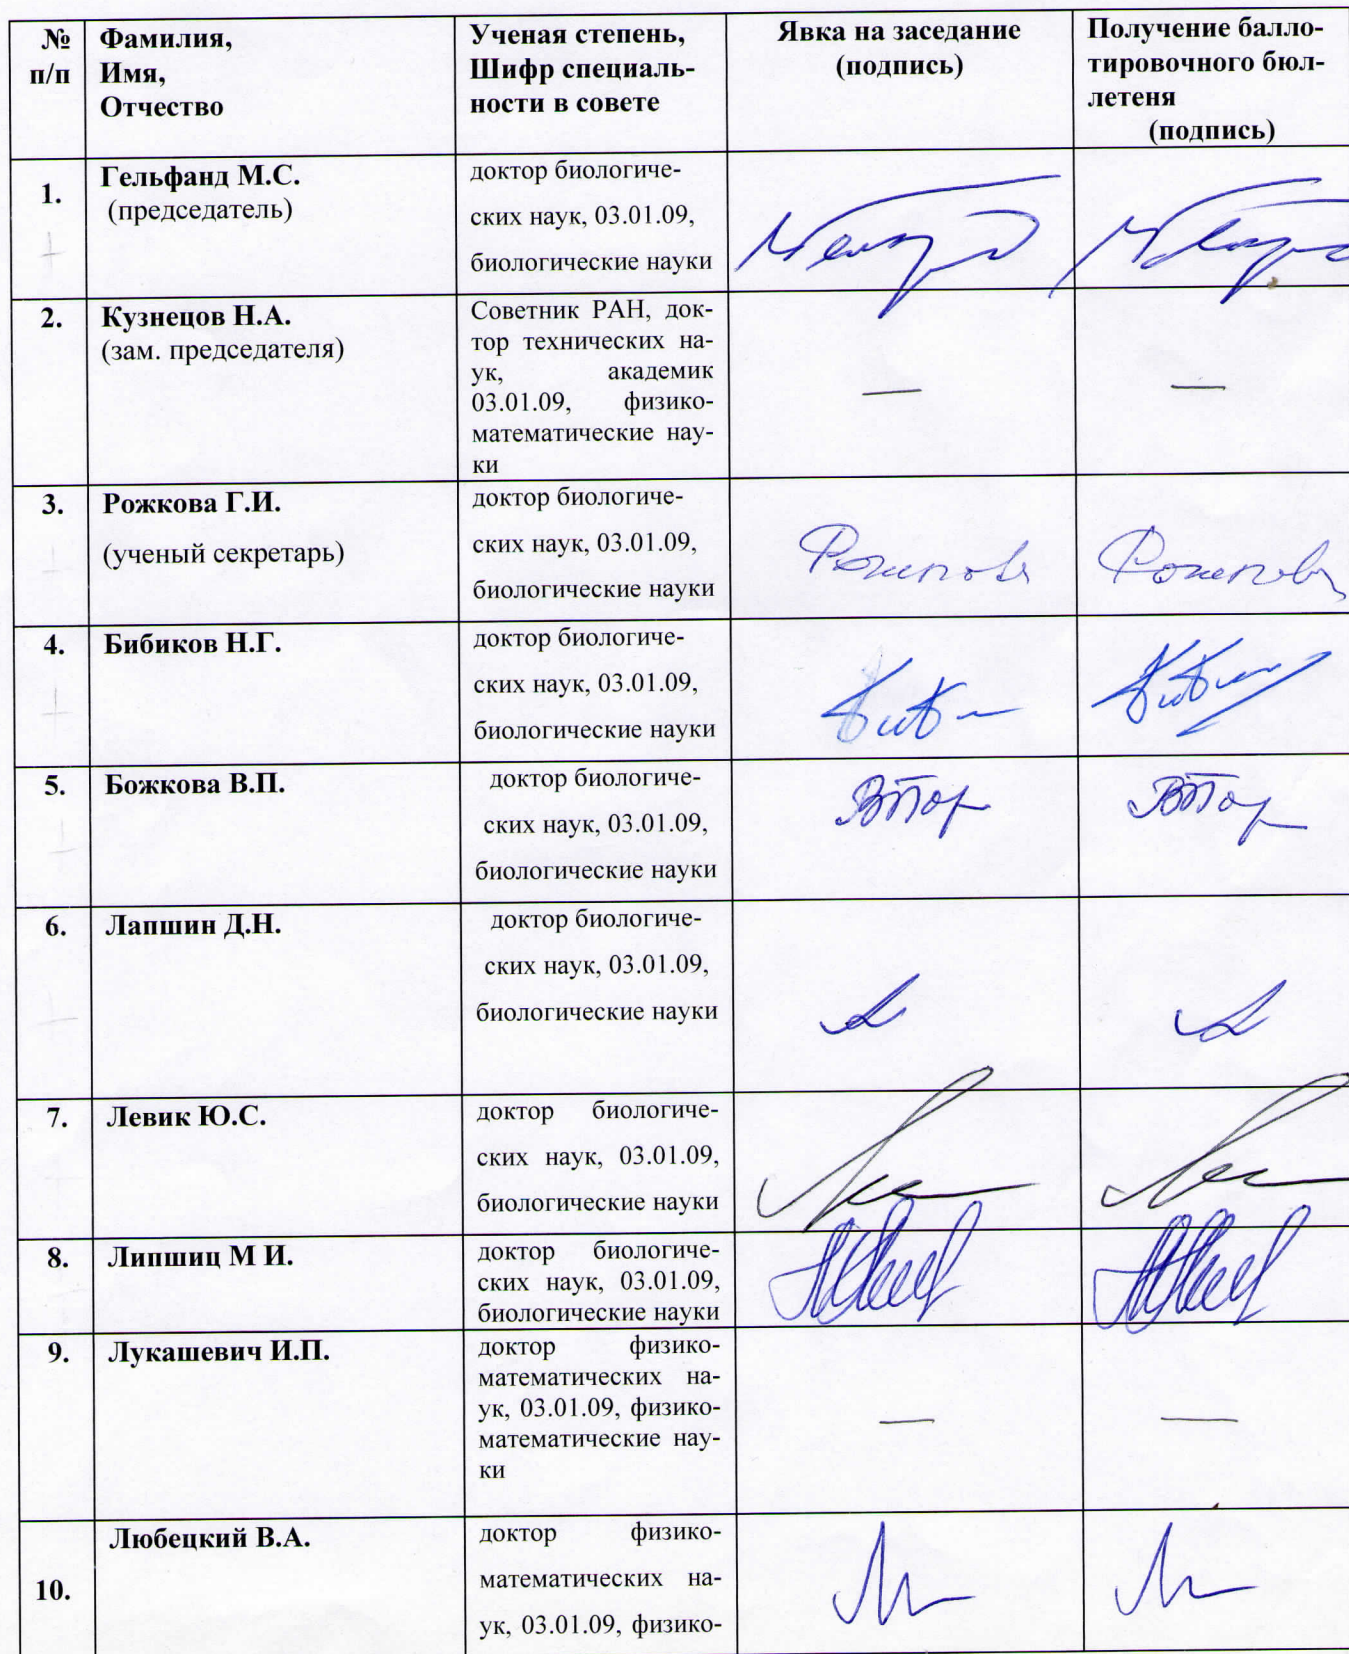 № п/п
Фамилия,
Имя,
Отчество
Ученая степень,
Шифр специаль-
ности в совете
Явка на заседание
(подпись)
Получение балло-
тировочного бюл-
летеня
(подпись)
1.
Гельфанд М.С.
(председатель)
доктор биологиче-
ских наук, 03.01.09,
биологические науки
2.
Кузнецов Н.А.
(зам. председателя)
Советник РАН, док-
тор технических на-
ук, академик
03.01.09, физико-
математические нау-
ки
—
—
3.
Рожкова Г.И.
(ученый секретарь)
доктор биологиче-
ских наук, 03.01.09,
биологические науки
4.
Бибиков Н.Г.
доктор биологиче-
ских наук, 03.01.09,
биологические науки
5.
Божкова В.П.
доктор биологиче-
ских наук, 03.01.09,
биологические науки
6.
Лапшин Д.Н.
доктор биологиче-
ских наук, 03.01.09,
биологические науки
7.
Левик Ю.С.
доктор биологиче-
ских наук, 03.01.09,
биологические науки
8.
Липшиц М И.
доктор биологиче-
ских наук, 03.01.09,
биологические науки
9.
Лукашевич И.П.
доктор физико-
математических на-
ук, 03.01.09, физико-
математические нау-
ки
—
—
10.
Любецкий В.А.
доктор физико-
математических на-
ук, 03.01.09, физико-